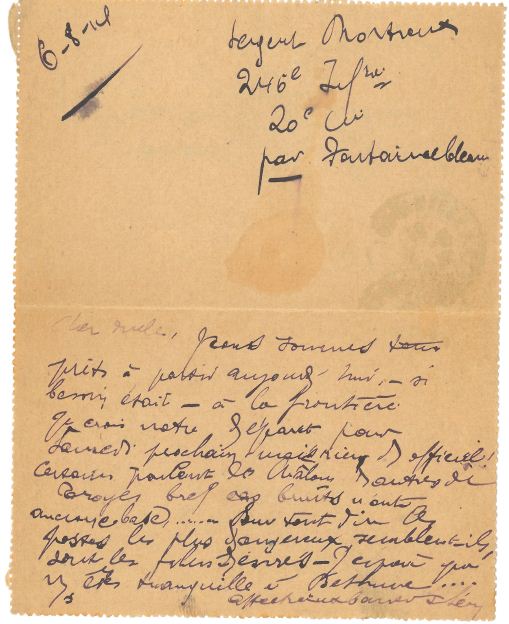 6-8-14
Sergent
246e Infrie
20e Cie
par Fontainebleau
Cher oncle, Nous sommes tous
prêts à partir aujourd'hui, - si
besoin était - à la frontière
Je crois notre départ pour
samedi prochain mais rien d'officiel.
Certains parlent de Châlons d'autres de
Troyes bref ces bruits n'ont
aucune base....... Pour tout dire les
postes les plus dangereux, semblent-ils,
sont les plus désirés - J'espère que
vs êtes tranquille à Bethune....
affectueux baisers